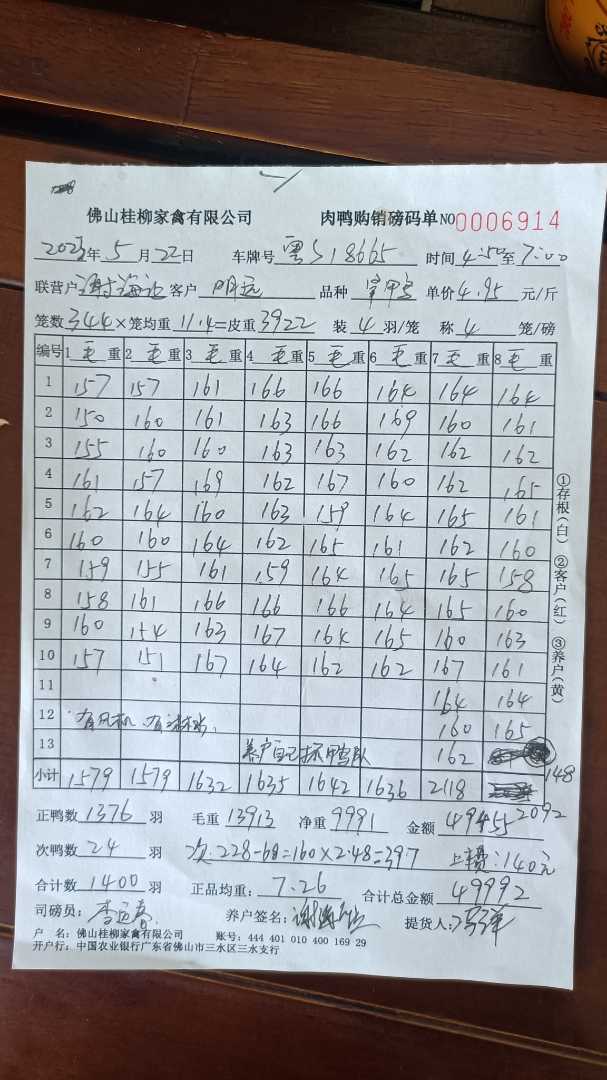 佛山桂柳家禽有限公司 肉鸭购销磅码单 NO 0006914
2023年 5月22日 车牌号 粤S18665 时间 4:50至7:00
联营户 谢海 客户 明远 品种 单价 4.95 元/斤
笼数 344×笼均重 11.4=皮重 3922 装 4 羽/笼 称 4 笼/磅
编号 1 毛 重 2 毛 重 3 毛 重 4 毛 重 5 毛 重 6 毛 重 7 毛 重 8 毛 重
1 157 157 161 166 166 164 164 164
2 150 160 161 163 166 169 160 161
3 155 160 160 163 163 162 162 162
4 161 157 169 162 167 160 162 165
5 162 164 160 163 159 164 165 161
6 160 160 164 162 165 161 162 160
7 159 155 161 159 164 165 165 158
8 158 161 166 166 166 164 165 160
9 160 154 163 167 164 165 160 163
10 157 151 167 164 162 162 167 161
11 164 164
12 有风机 160 165
13 养户自己抓鸭 162 148
小计 1579 1579 1632 1635 1642 1636 2118 2092
正鸭数 1376 羽 毛重 13913 净重 9991 金额 49455
次鸭数 24 羽 次:228-68=160×2.48=397 上楼:140元
合计数 1400 羽 正品均重: 7.26 合计总金额 49992
司磅员: 养户签名: 谢海 提货人:
户 名: 佛山桂柳家禽有限公司 账号: 444 401 010 400 169 29
开户行: 中国农业银行广东省佛山市三水区三水支行
①存根(白) ②客户(红) ③养户(黄)